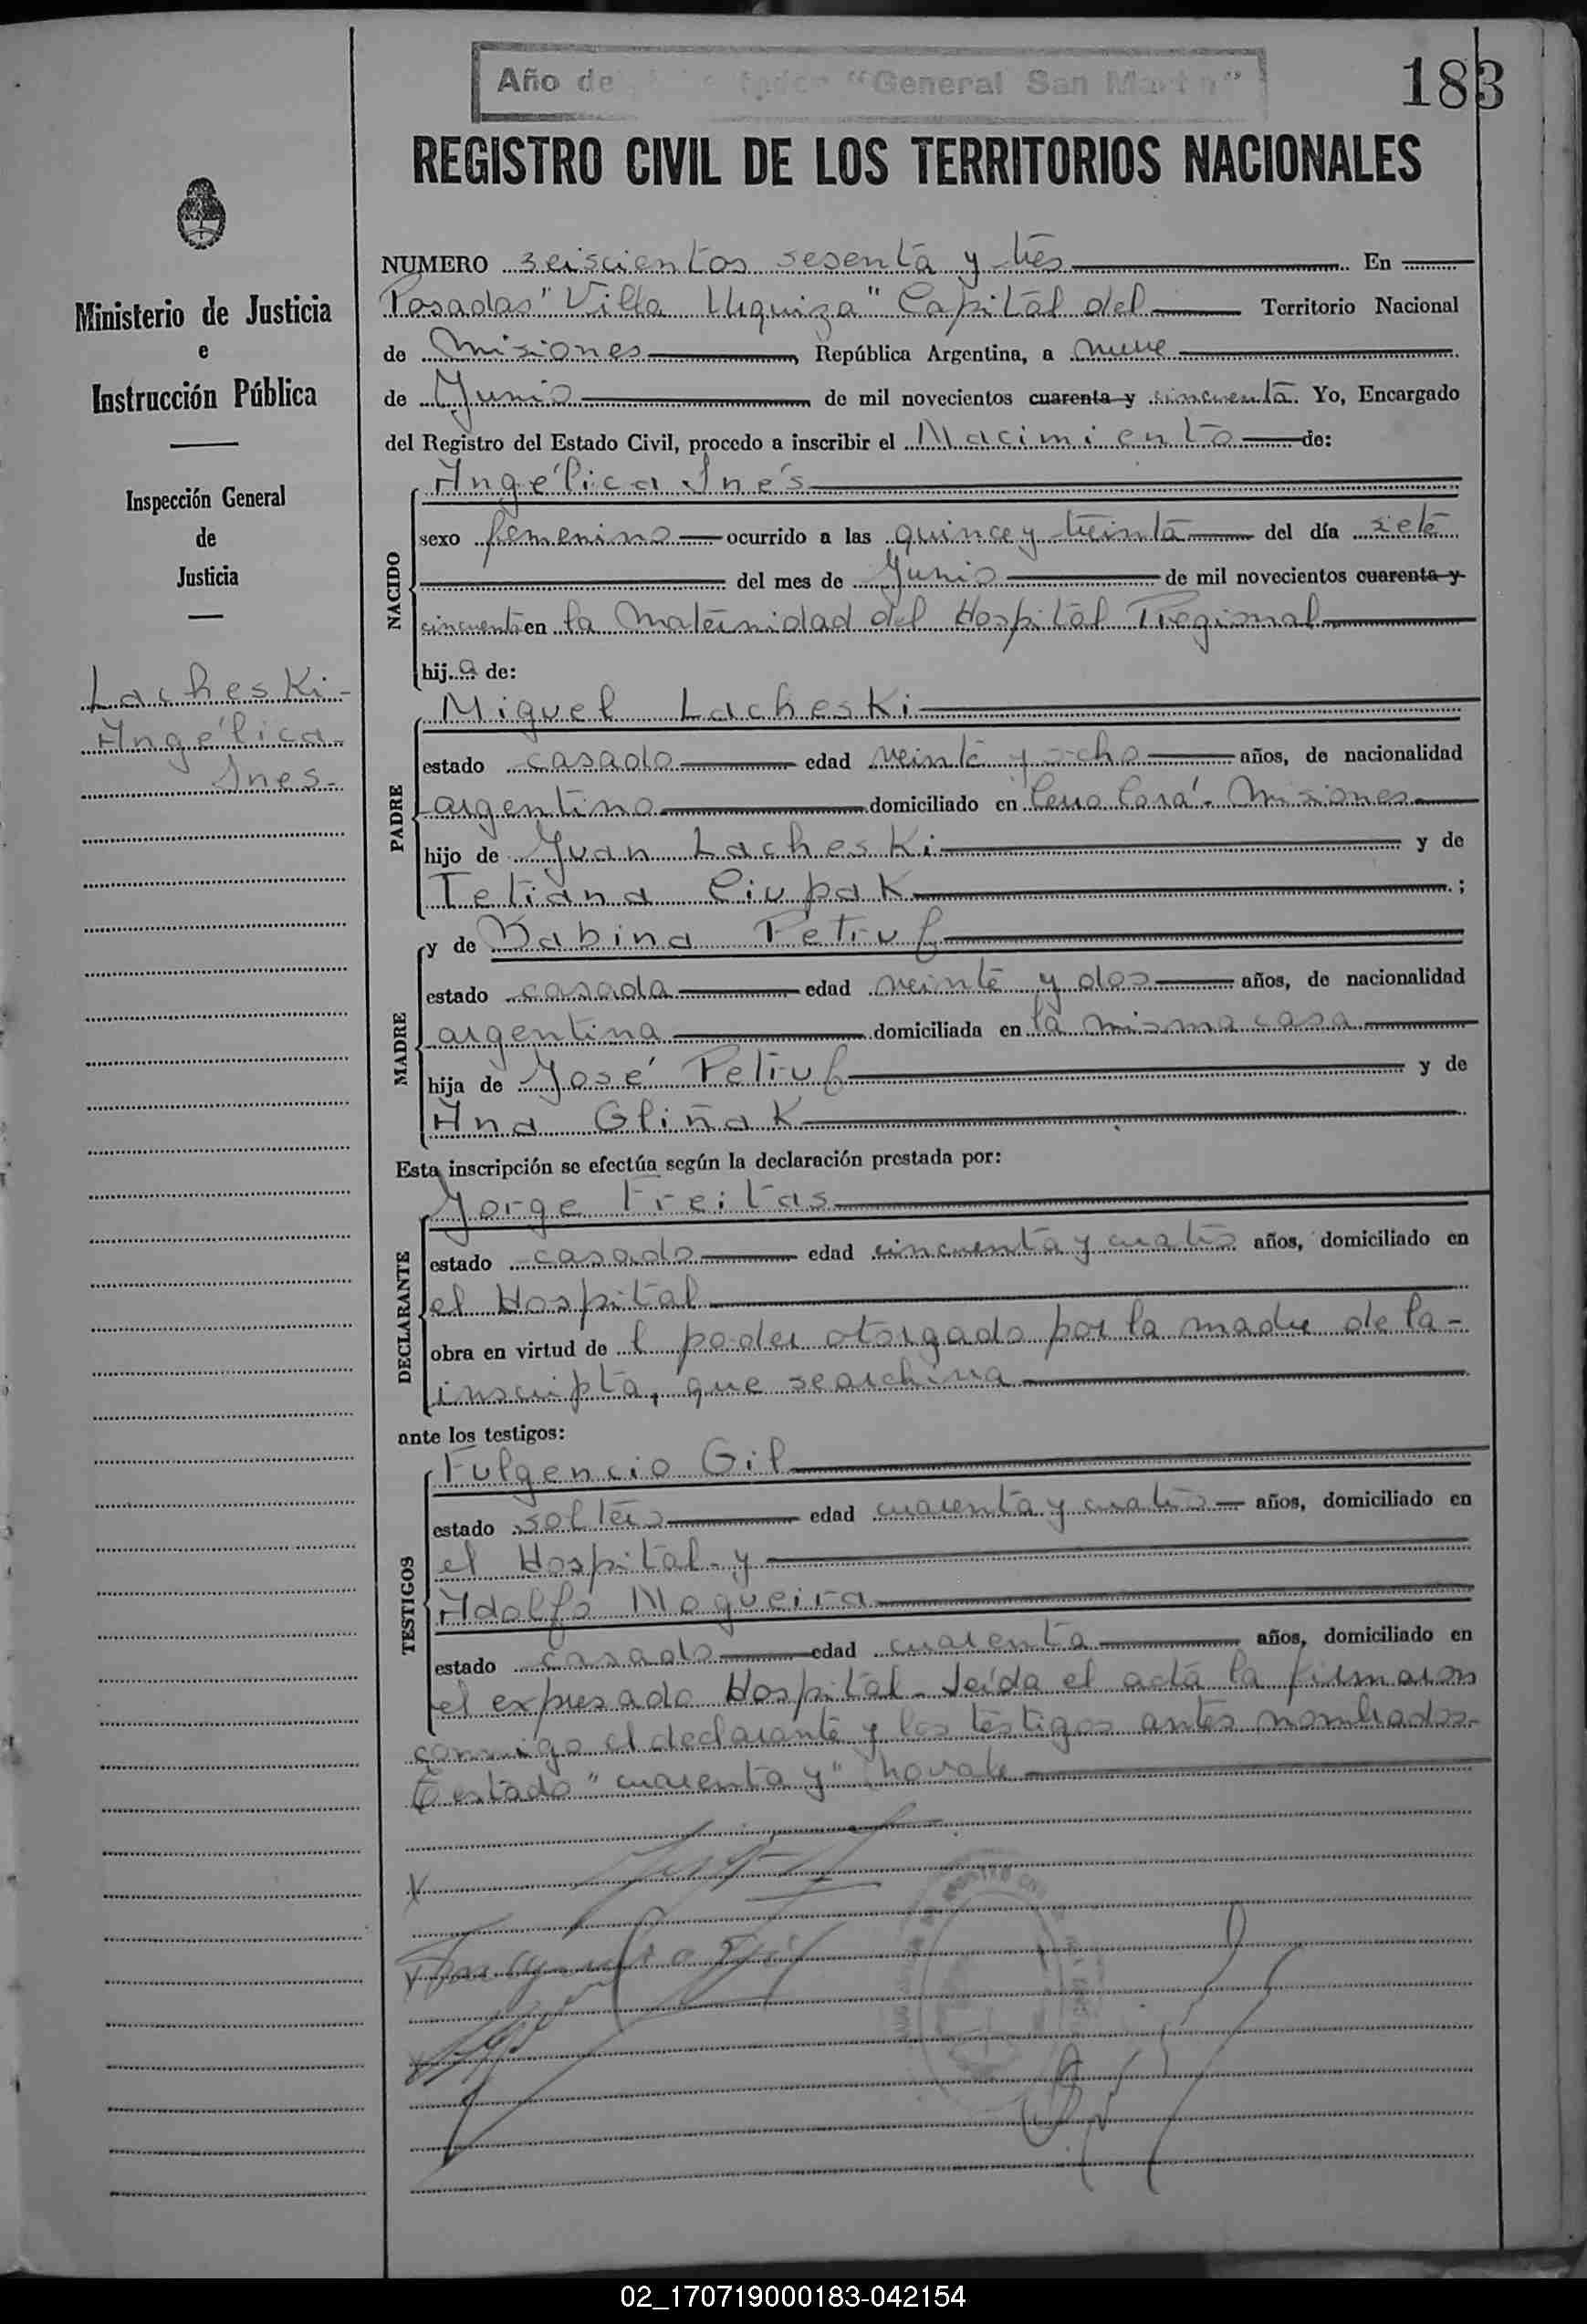 Año de "General San Martin"
183
REGISTRO CIVIL DE LOS TERRITORIOS NACIONALES
Ministerio de Justicia
e
Instrucción Pública
Inspección General
de
Justicia
Lacheski-
Angélica
Ines-
NUMERO seiscientos sesenta y tres En
Posadas "Villa Urquiza" Capital del Territorio Nacional
de Misiones, República Argentina, a nueve
de Junio de mil novecientos cuarenta y cincuenta. Yo, Encargado
del Registro del Estado Civil, procedo a inscribir el Nacimiento de:
NACIDO
Angélica Inés
sexo femenino ocurrido a las quince y treinta del día siete
del mes de Junio de mil novecientos cuarenta y
cincuenta en la Maternidad del Hospital Regional
hija de:
PADRE
Miguel Lacheski
estado casado edad veinte y ocho años, de nacionalidad
argentino domiciliado en Cerro Corá - Misiones
hijo de Juan Lacheski y de
Tetiana Ciupak ;
MADRE
y de Sabina Petruf
estado casada edad veinte y dos años, de nacionalidad
argentina domiciliada en la misma casa
hija de José Petruf y de
Ana Gliñak
Esta inscripción se efectúa según la declaración prestada por:
DECLARANTE
Jorge Freitas
estado casado edad cincuenta y cuatro años, domiciliado en
el Hospital
obra en virtud de l poder otorgado por la madre de la-
inscripta, que se archiva
ante los testigos:
TESTIGOS
Fulgencio Gil
estado soltero edad cuarenta y cuatro años, domiciliado en
el Hospital - y
Adolfo Nogueira
estado casado edad cuarenta años, domiciliado en
el expresado Hospital - Leída el acta la firmaron
conmigo el declarante y los testigos antes nombrados-
Testado "cuarenta y" no vale
02_170719000183-042154